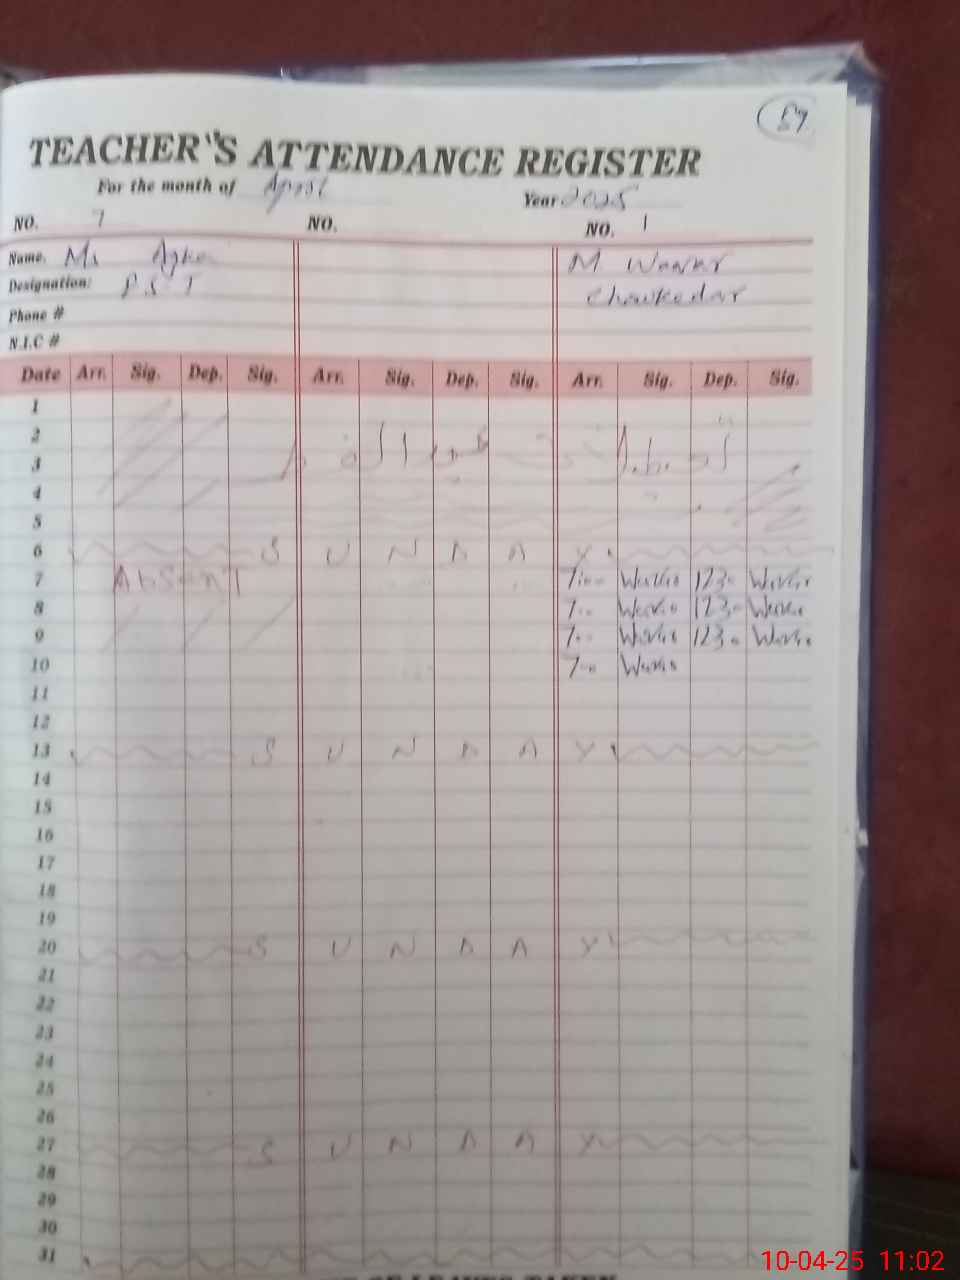 57
TEACHER'S ATTENDANCE REGISTER
For the month of April Year 2025
NO. 7 NO. NO. 1
Name. Ms M
Designation: P S T Chawkedar
Phone #
N.I.C #
Date Arr. Sig. Dep. Sig. Arr. Sig. Dep. Sig. Arr. Sig. Dep. Sig.
1
2
3
4
5
6 S U N D A Y
7 AbSenT 7:00 1230
8 7:00 1230
9 7:00 1230
10 7:00
11
12
13 S U N D A Y
14
15
16
17
18
19
20 S U N D A Y
21
22
23
24
25
26
27 S U N D A Y
28
29
30
31
OF LEAVES TAKEN
10-04-25 11:02